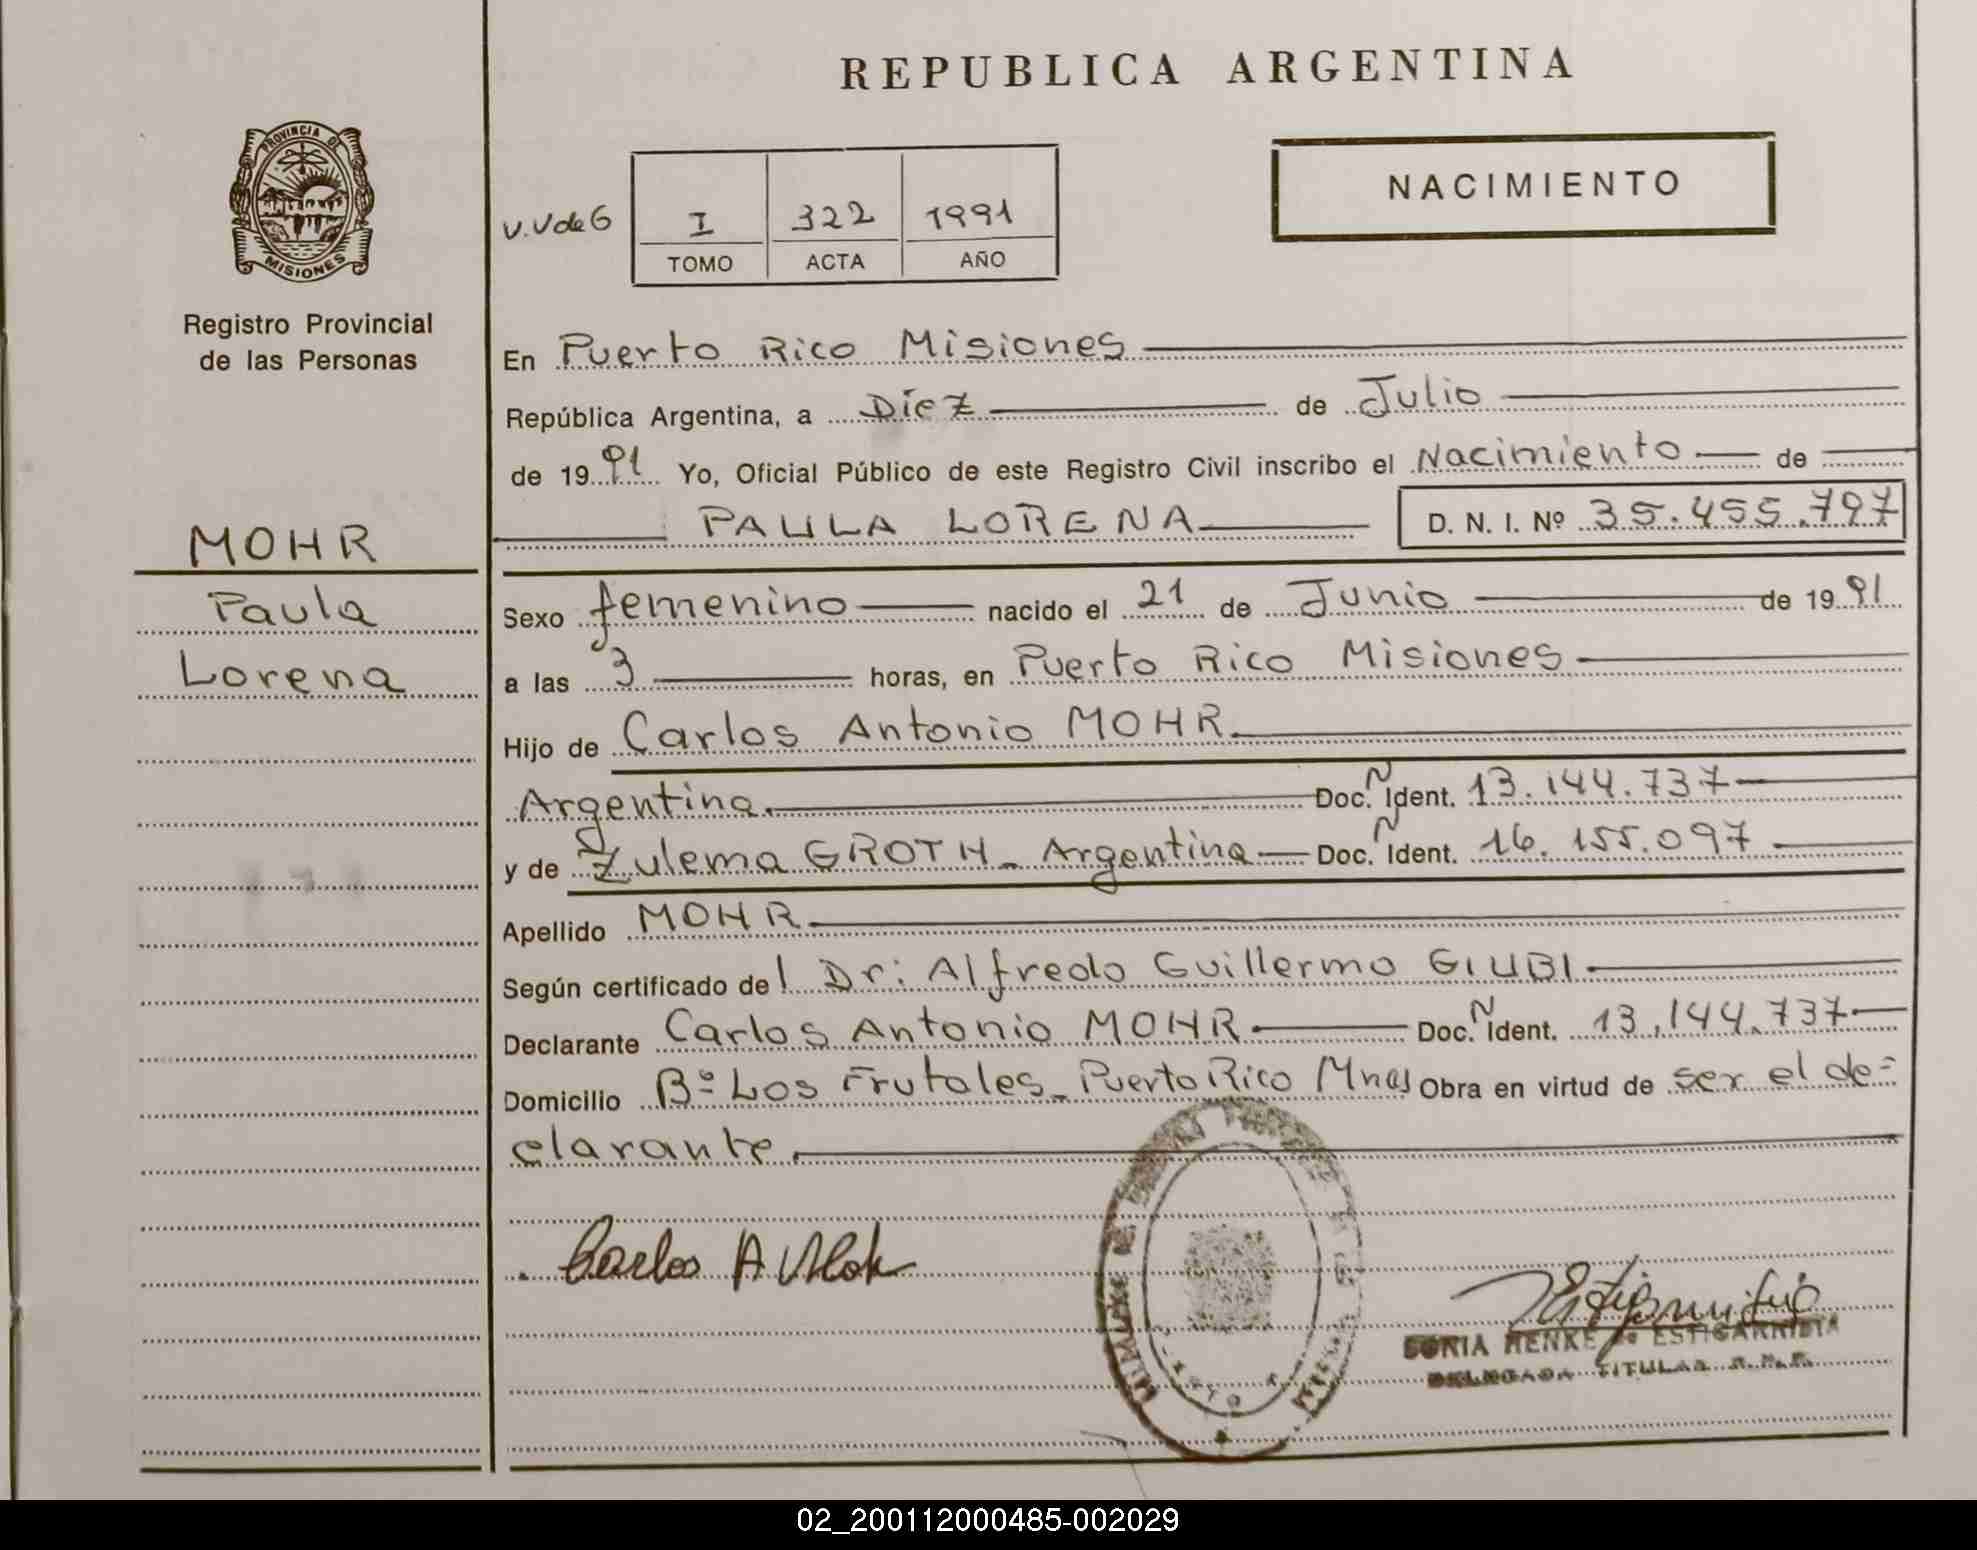 REPUBLICA ARGENTINA
PROVINCIA DE
MISIONES
Registro Provincial
de las Personas
NACIMIENTO
V.V de G
I 322 1991
TOMO ACTA AÑO
MOHR
Paula
Lorena
En Puerto Rico Misiones
República Argentina, a Diez de Julio
de 19 91 Yo, Oficial Público de este Registro Civil inscribo el Nacimiento de
PAULA LORENA D. N. I. Nº 35.455.797
Sexo femenino nacido el 21 de Junio de 19 91
a las 3 horas, en Puerto Rico Misiones
Hijo de Carlos Antonio MOHR
Argentina. Doc. N Ident. 13.144.737
y de Zulema GROTH - Argentina Doc. N Ident. 16.155.097
Apellido MOHR
Según certificado del Dr: Alfredo Guillermo GIUBI
Declarante Carlos Antonio MOHR Doc. N Ident. 13.144.737
Domicilio Bº Los Frutales - Puerto Rico Mnes Obra en virtud de ser el de=
clarante.
Carlos A Mohr
SONIA HENKE de ESTIGARRIBIA
DELEGADA TITULAR R.P.P.
02_200112000485-002029